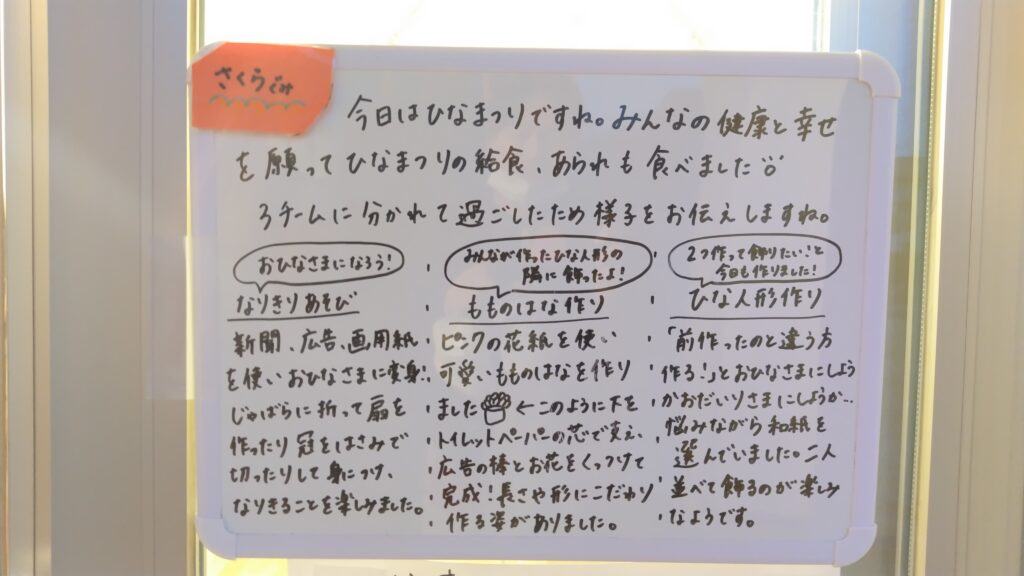 さくらぐみ
今日はひなまつりですね。みんなの健康と幸せ
を願ってひなまつりの給食、あられも食べました
3チームに分かれて過ごしたため様子をお伝えしますね。
おひなさまになろう!
なりきりあそび
新聞、広告、画用紙
を使いおひなさまに変身!
じゃばらに折って扇を
作ったり冠をはさみで
切ったりして身につけ、
なりきることを楽しみました。
みんなが作ったひな人形の
隣に飾ったよ!
もものはな作り
ピンクの花紙を使い
可愛いもものはなを作り
ました ←このように下を
トイレットペーパーの芯で支え、
広告の棒とお花をくっつけて
完成!長さや形にこだわり
作る姿がありました。
2つ作って飾りたい!と
今日も作りました!
ひな人形作り
「前作ったのと違う方
作る!」とおひなさまにしよう
かおだいりさまにしようか…
悩みながら和紙を
選んでいました。二人
並べて飾るのが楽しみ
なようです。